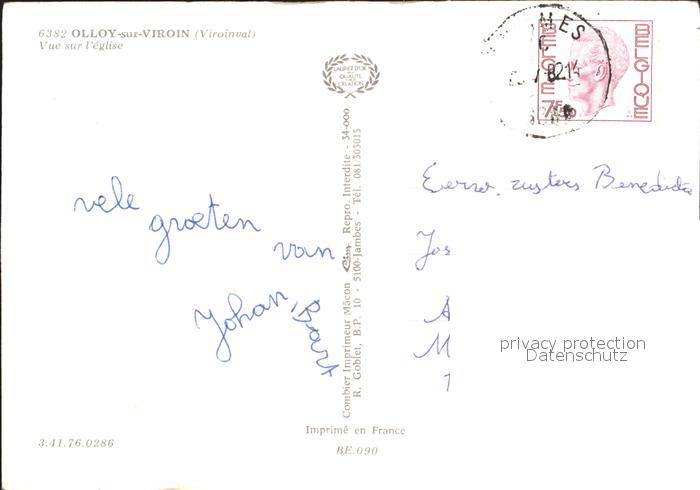 6382 OLLOY-sur-VIROIN (Viroinval)
Vue sur l'église
LAURIER D'OR
DE LA
QUALITE
CREATION
BELGIQUE
BELGIE
7F50
vele
groeten
van
Johan, Bart
Combier Imprimeur Mâcon Cim Repro. Interdite - 34-000
R. Goblet, B.P. 10 - 5100-Jambes - Tél. 081/303015
Eerw. zusters
Jos
A
M
privacy protection
Datenschutz
Imprimé en France
3.41.76.0286
BE.090